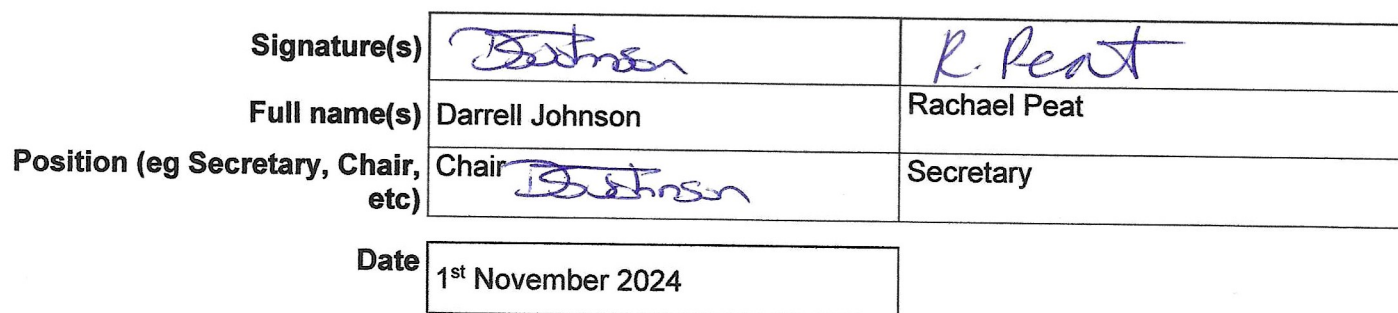 Signature(s) R. Peat
Full name(s) Darrell Johnson Rachael Peat
Position (eg Secretary, Chair, Chair Secretary
etc)
Date 1st November 2024